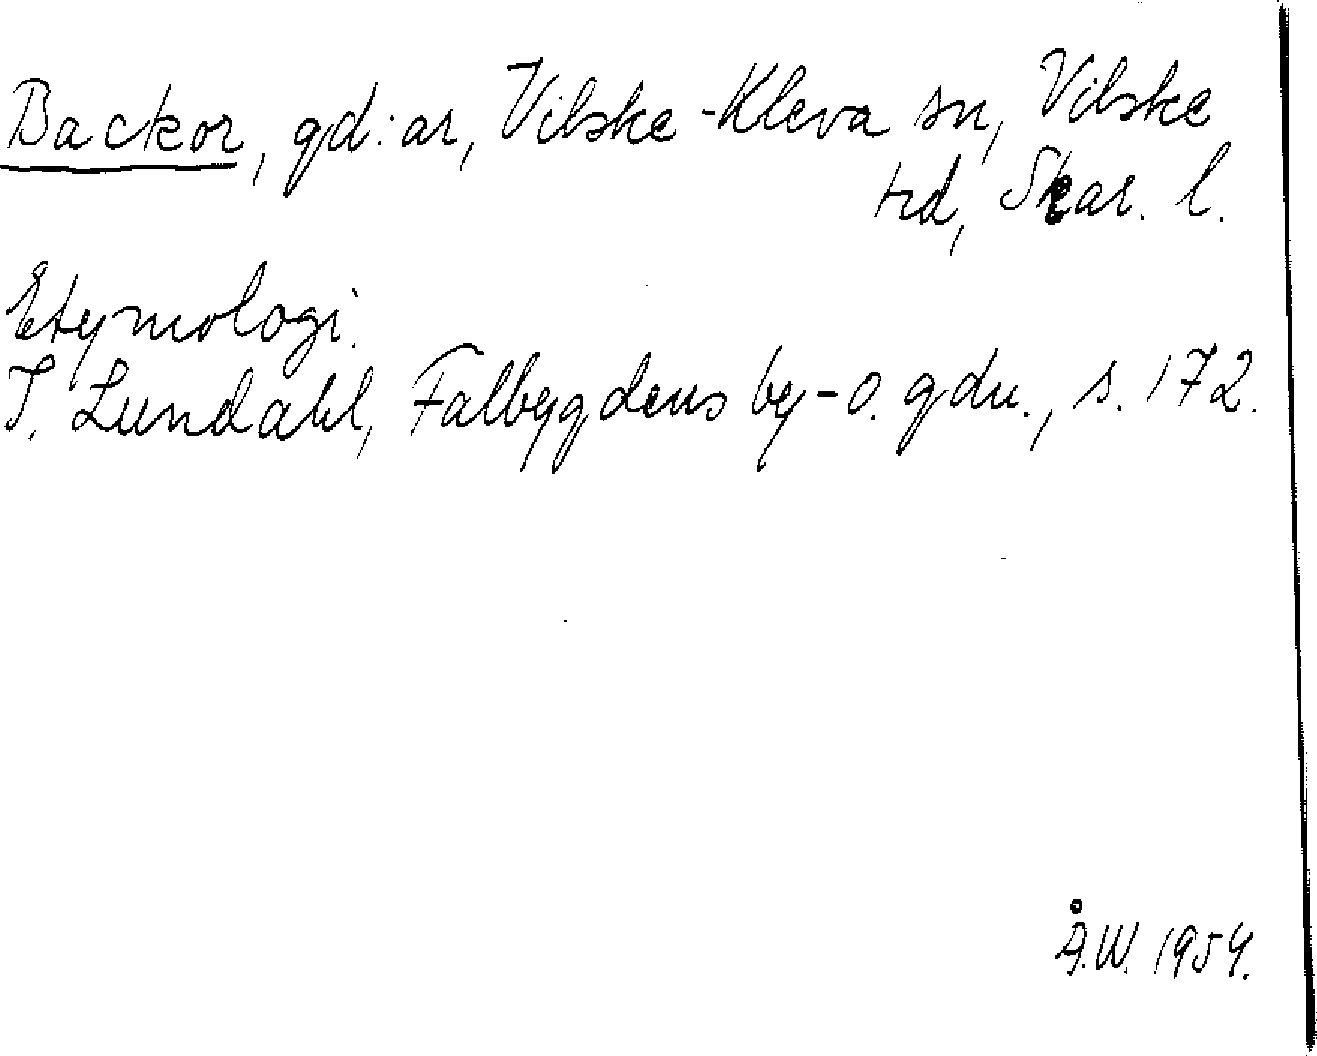 Backor, gd:ar, Vilske-Kleva sn, Vilske
hd, Skar. l.
Etymologi.
I. Lundahl, Falbygdens by- o. gdn., s. 172.
Å.W. 1954.